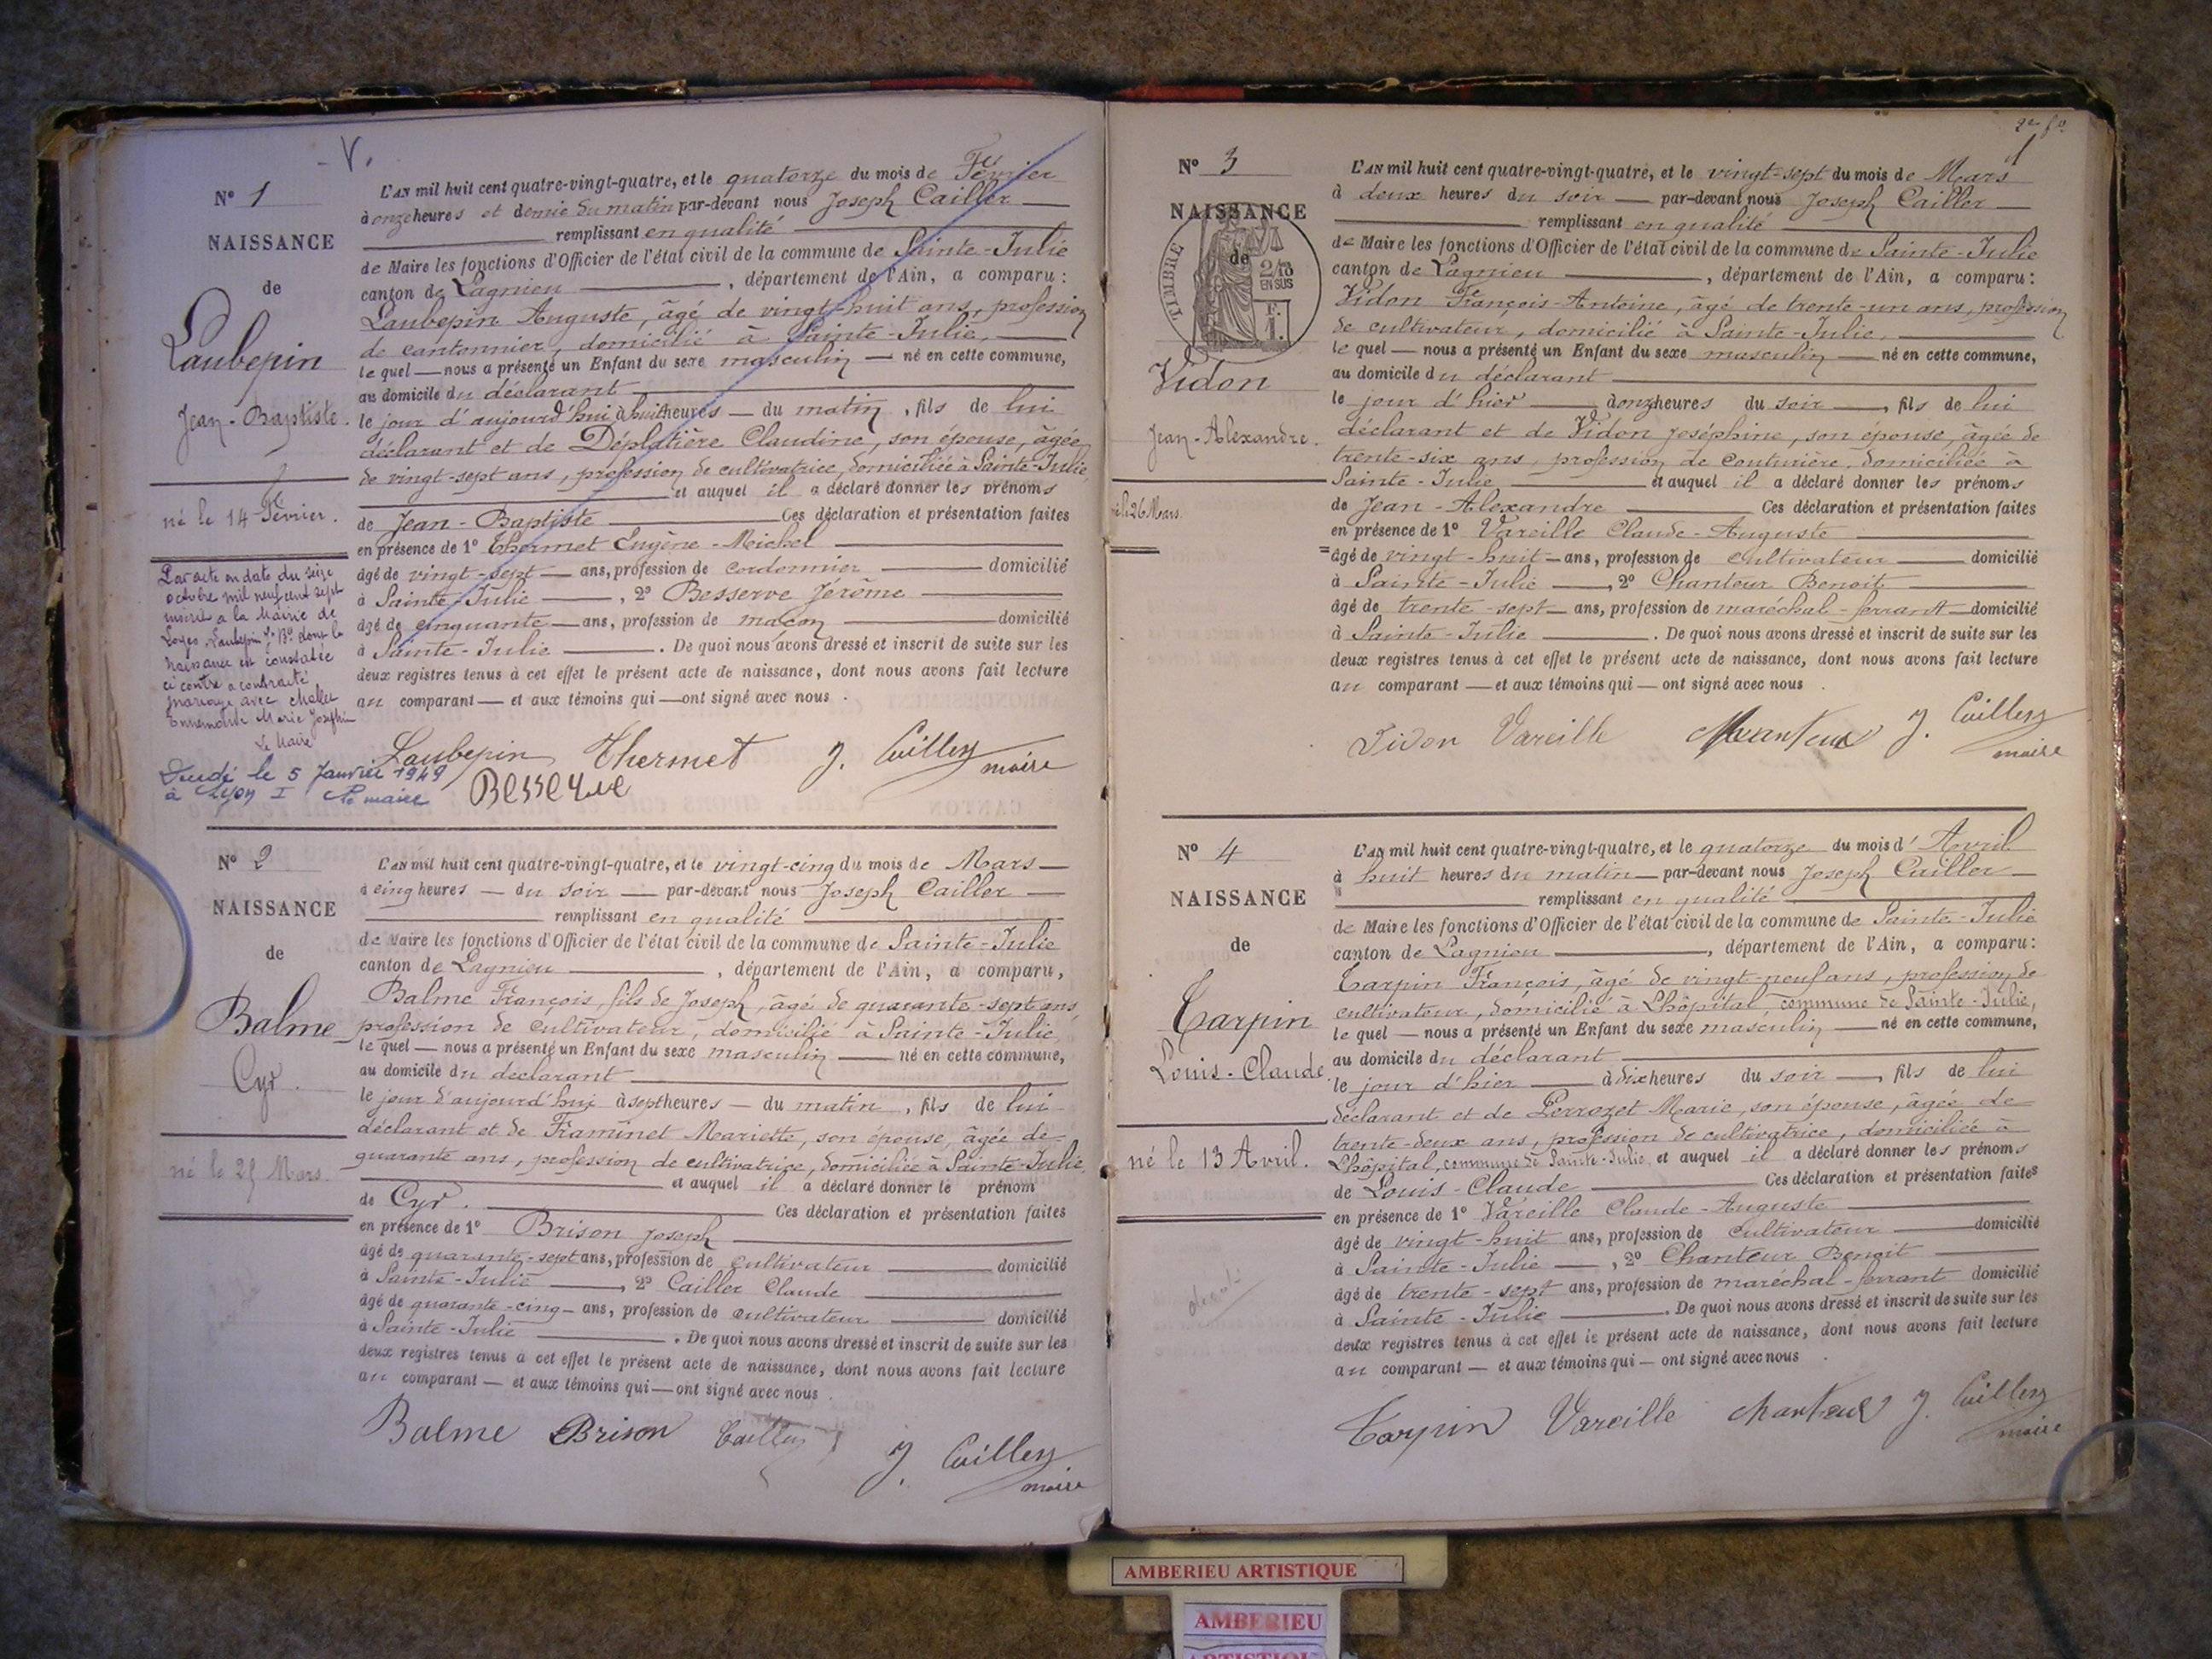 V.
Nº 1
NAISSANCE
de
Laubepin
Jean-Baptiste.
né le 14 Février.
Par acte en date du seize
octobre mil neuf cent sept
inscrit à la Mairie de
Loyes Laubepin Jn Bte dont la
naissance est constatée
ci contre a contracté
mariage avec
Ennemonde Marie Joséphine
Le Maire
Décédé le 5 Janvier 1949
à Lyon I Le maire
L'AN mil huit cent quatre-vingt-quatre, et le quatorze du mois de Février
à onze heures et demie du matin par-devant nous Joseph Cailler
remplissant en qualité
de Maire les fonctions d'Officier de l'état civil de la commune de Sainte-Julie
canton de Lagnieu, département de l'Ain, a comparu :
Laubepin Auguste, âgé de vingt-huit ans, profession
de cantonnier, domicilié à Sainte-Julie,
le quel — nous a présenté un Enfant du sexe masculin — né en cette commune,
au domicile du déclarant
le jour d'aujourd'hui à huit heures — du matin, fils de lui
déclarant et de Déplatière Claudine, son épouse, âgée
de vingt-sept ans, profession de cultivatrice, domiciliée à Sainte-Julie,
et auquel il a déclaré donner les prénoms
de Jean-Baptiste Ces déclaration et présentation faites
en présence de 1º Thermet Eugène-Michel
âgé de vingt-sept — ans, profession de cordonnier domicilié
à Sainte-Julie, 2º Besserve Jérôme
âgé de cinquante — ans, profession de maçon domicilié
à Sainte-Julie. De quoi nous avons dressé et inscrit de suite sur les
deux registres tenus à cet effet le présent acte de naissance, dont nous avons fait lecture
au comparant — et aux témoins qui — ont signé avec nous.
Laubepin Thermet J. Cailler
maire
Besserve
Nº 2
NAISSANCE
de
Balme
Cyr.
né le 25 Mars.
L'AN mil huit cent quatre-vingt-quatre, et le vingt-cinq du mois de Mars
à cinq heures — du soir — par-devant nous Joseph Cailler
remplissant en qualité
de Maire les fonctions d'Officier de l'état civil de la commune de Sainte-Julie
canton de Lagnieu, département de l'Ain, a comparu,
Balme François, fils de Joseph, âgé de quarante-sept ans,
profession de cultivateur, domicilié à Sainte-Julie,
le quel — nous a présenté un Enfant du sexe masculin — né en cette commune,
au domicile du déclarant
le jour d'aujourd'hui à sept heures — du matin, fils de lui
déclarant et de Framinet Mariette, son épouse, âgée de
quarante ans, profession de cultivatrice, domiciliée à Sainte-Julie,
et auquel il a déclaré donner le prénom
de Cyr. Ces déclaration et présentation faites
en présence de 1º Brison Joseph
âgé de quarante-sept ans, profession de cultivateur domicilié
à Sainte-Julie, 2º Cailler Claude
âgé de quarante-cinq — ans, profession de cultivateur domicilié
à Sainte-Julie. De quoi nous avons dressé et inscrit de suite sur les
deux registres tenus à cet effet le présent acte de naissance, dont nous avons fait lecture
au comparant — et aux témoins qui — ont signé avec nous.
Balme Brison Cailler J. Cailler
maire
2e fo
Nº 3
NAISSANCE
de
TIMBRE
2/10
EN SUS
F.
1.
Vidon
Jean-Alexandre.
né le 26 Mars.
L'AN mil huit cent quatre-vingt-quatre, et le vingt-sept du mois de Mars
à deux heures du soir — par-devant nous Joseph Cailler
remplissant en qualité
de Maire les fonctions d'Officier de l'état civil de la commune de Sainte-Julie
canton de Lagnieu, département de l'Ain, a comparu :
Vidon François-Antoine, âgé de trente-un ans, profession
de cultivateur, domicilié à Sainte-Julie,
le quel — nous a présenté un Enfant du sexe masculin — né en cette commune,
au domicile du déclarant
le jour d'hier à onze heures du soir, fils de lui
déclarant et de Vidon Joséphine, son épouse, âgée de
trente-six ans, profession de couturière, domiciliée à
Sainte-Julie et auquel il a déclaré donner les prénoms
de Jean-Alexandre Ces déclaration et présentation faites
en présence de 1º Vareille Claude-Auguste
âgé de vingt-huit — ans, profession de cultivateur domicilié
à Sainte-Julie, 2º Chanteur Benoit
âgé de trente-sept — ans, profession de maréchal-ferrant domicilié
à Sainte-Julie. De quoi nous avons dressé et inscrit de suite sur les
deux registres tenus à cet effet le présent acte de naissance, dont nous avons fait lecture
au comparant — et aux témoins qui — ont signé avec nous.
Vidon Vareille Chanteur J. Cailler
maire
Nº 4
NAISSANCE
de
Tarpin
Louis-Claude
né le 13 Avril.
L'AN mil huit cent quatre-vingt-quatre, et le quatorze du mois d'Avril
à huit heures du matin — par-devant nous Joseph Cailler
remplissant en qualité
de Maire les fonctions d'Officier de l'état civil de la commune de Sainte-Julie
canton de Lagnieu, département de l'Ain, a comparu :
Tarpin François, âgé de vingt-neuf ans, profession de
cultivateur, domicilié à Lhôpital, commune de Sainte-Julie,
le quel — nous a présenté un Enfant du sexe masculin — né en cette commune,
au domicile du déclarant
le jour d'hier à dix heures du soir, fils de lui
déclarant et de Perrozet Marie, son épouse, âgée de
trente-deux ans, profession de cultivatrice, domiciliée à
Lhôpital, commune de Sainte-Julie, et auquel il a déclaré donner les prénoms
de Louis-Claude Ces déclaration et présentation faites
en présence de 1º Vareille Claude-Auguste
âgé de vingt-huit ans, profession de cultivateur domicilié
à Sainte-Julie, 2º Chanteur Benoit
âgé de trente-sept ans, profession de maréchal-ferrant domicilié
à Sainte-Julie. De quoi nous avons dressé et inscrit de suite sur les
deux registres tenus à cet effet le présent acte de naissance, dont nous avons fait lecture
au comparant — et aux témoins qui — ont signé avec nous.
Tarpin Vareille Chanteur J. Cailler
maire
AMBERIEU ARTISTIQUE
AMBERIEU
ARTISTIQUE